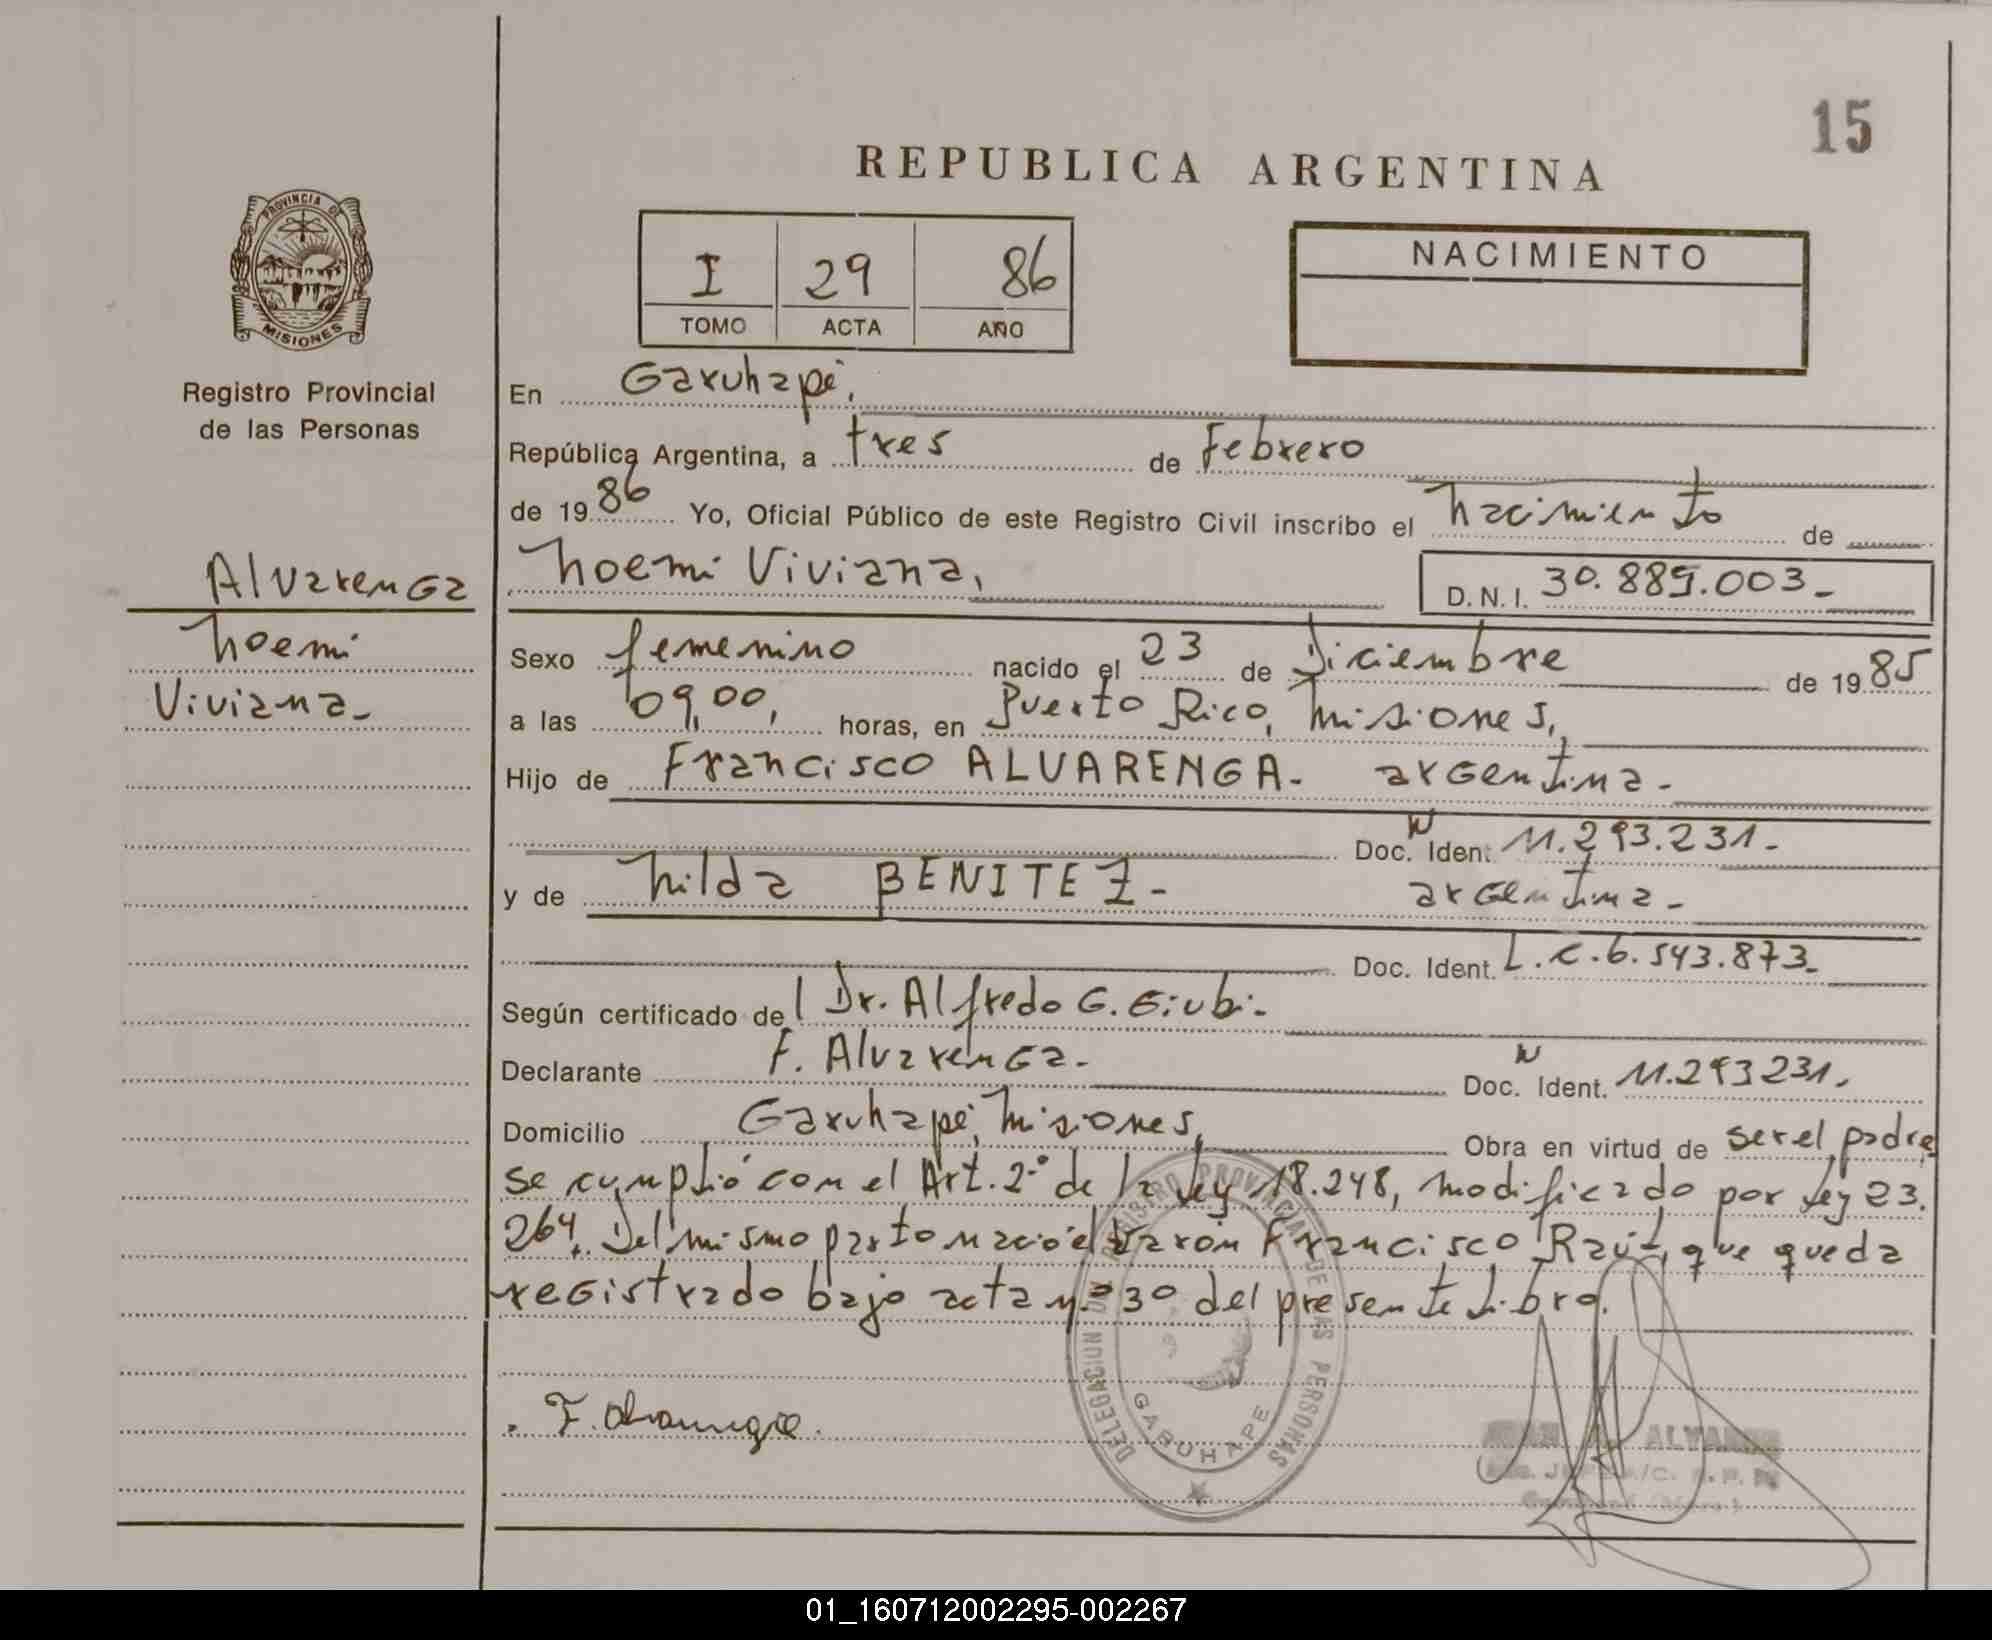 15
REPUBLICA ARGENTINA
PROVINCIA DE
MISIONES
I 29 86
TOMO ACTA AÑO
NACIMIENTO
Registro Provincial
de las Personas
En Garuhapé,
República Argentina, a tres de Febrero
de 19 86 Yo, Oficial Público de este Registro Civil inscribo el nacimiento de
Alvarenga
Noemi
Viviana-
Noemi Viviana, D.N.I. 30.885.003-
Sexo femenino nacido el 23 de Diciembre de 19 85
a las 09,00, horas, en Puerto Rico, Misiones,
Hijo de Francisco ALVARENGA- argentina-
Doc. Iden: N 11.293.231-
y de Nilda BENITEZ- argentina-
Doc. Ident. L.C. 6.543.873-
Según certificado del Dr. Alfredo G. Giubi-
Declarante F. Alvarenga- Doc. Ident. N 11.293231,
Domicilio Garuhapé, Misiones, Obra en virtud de ser el padre
se cumplió con el Art. 2º de la Ley 18.248, modificado por Ley 23.
264. Del mismo parto nació el varón Francisco Raúl, que queda
registrado bajo acta nº 30 del presente Libro.
F. Alvarenga.
DELEGACION DEL REGISTRO PROVINCIAL DE LAS PERSONAS
GARUHAPE
01_160712002295-002267